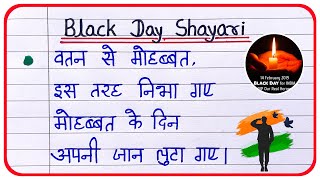 Black Day Shayari
वतन से मोहब्बत,
इस तरह निभा गए
मोहब्बत के दिन
अपनी जान लुटा गए।
14 February 2019
BLACK DAY for INDIA
RIP Our Real Heroes